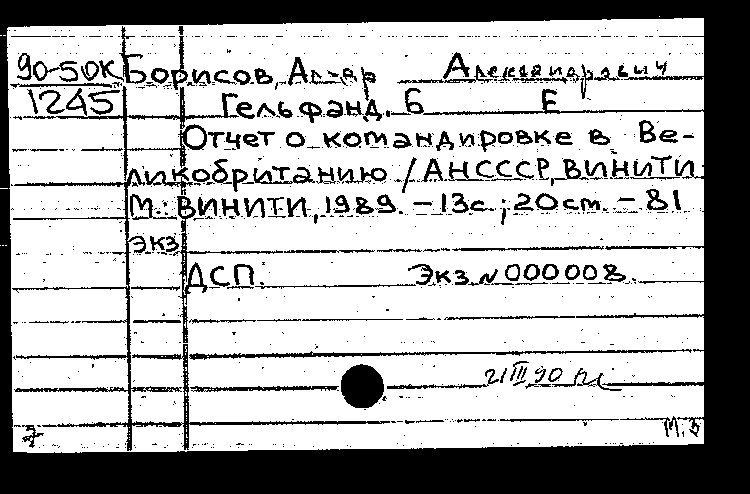 90-50К Борисов, Ал-др Александрович
1245 Гельфанд, Б Е
Отчет о командировке в Ве-
ликобританию / АНСССР, ВИНИТИ
М.: ВИНИТИ, 1989. - 13с.; 20 cm. - 81
экз
ДСП. Экз. N 000008.
21 III 90